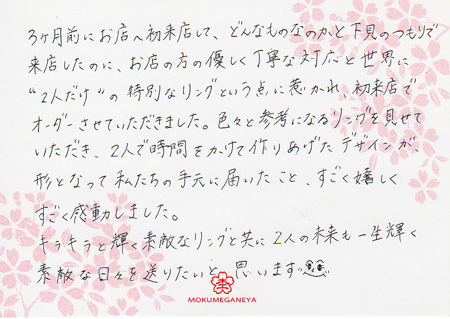 3ヶ月前にお店へ初来店して、どんなものなのか、と下見のつもりで
来店したのに、お店の方の優しく丁寧な対応と世界に
"2人だけ"の特別なリングという点に惹かれ、初来店で
オーダーさせていただきました。色々と参考になるリングを見せて
いただき、2人で時間をかけて作りあげたデザインが、
形となって私たちの手元に届いたこと、すごく嬉しく
すごく感動しました。
キラキラと輝く素敵なリングと共に2人の未来も一生輝く
素敵な日々を送りたいと思います
MOKUMEGANEYA